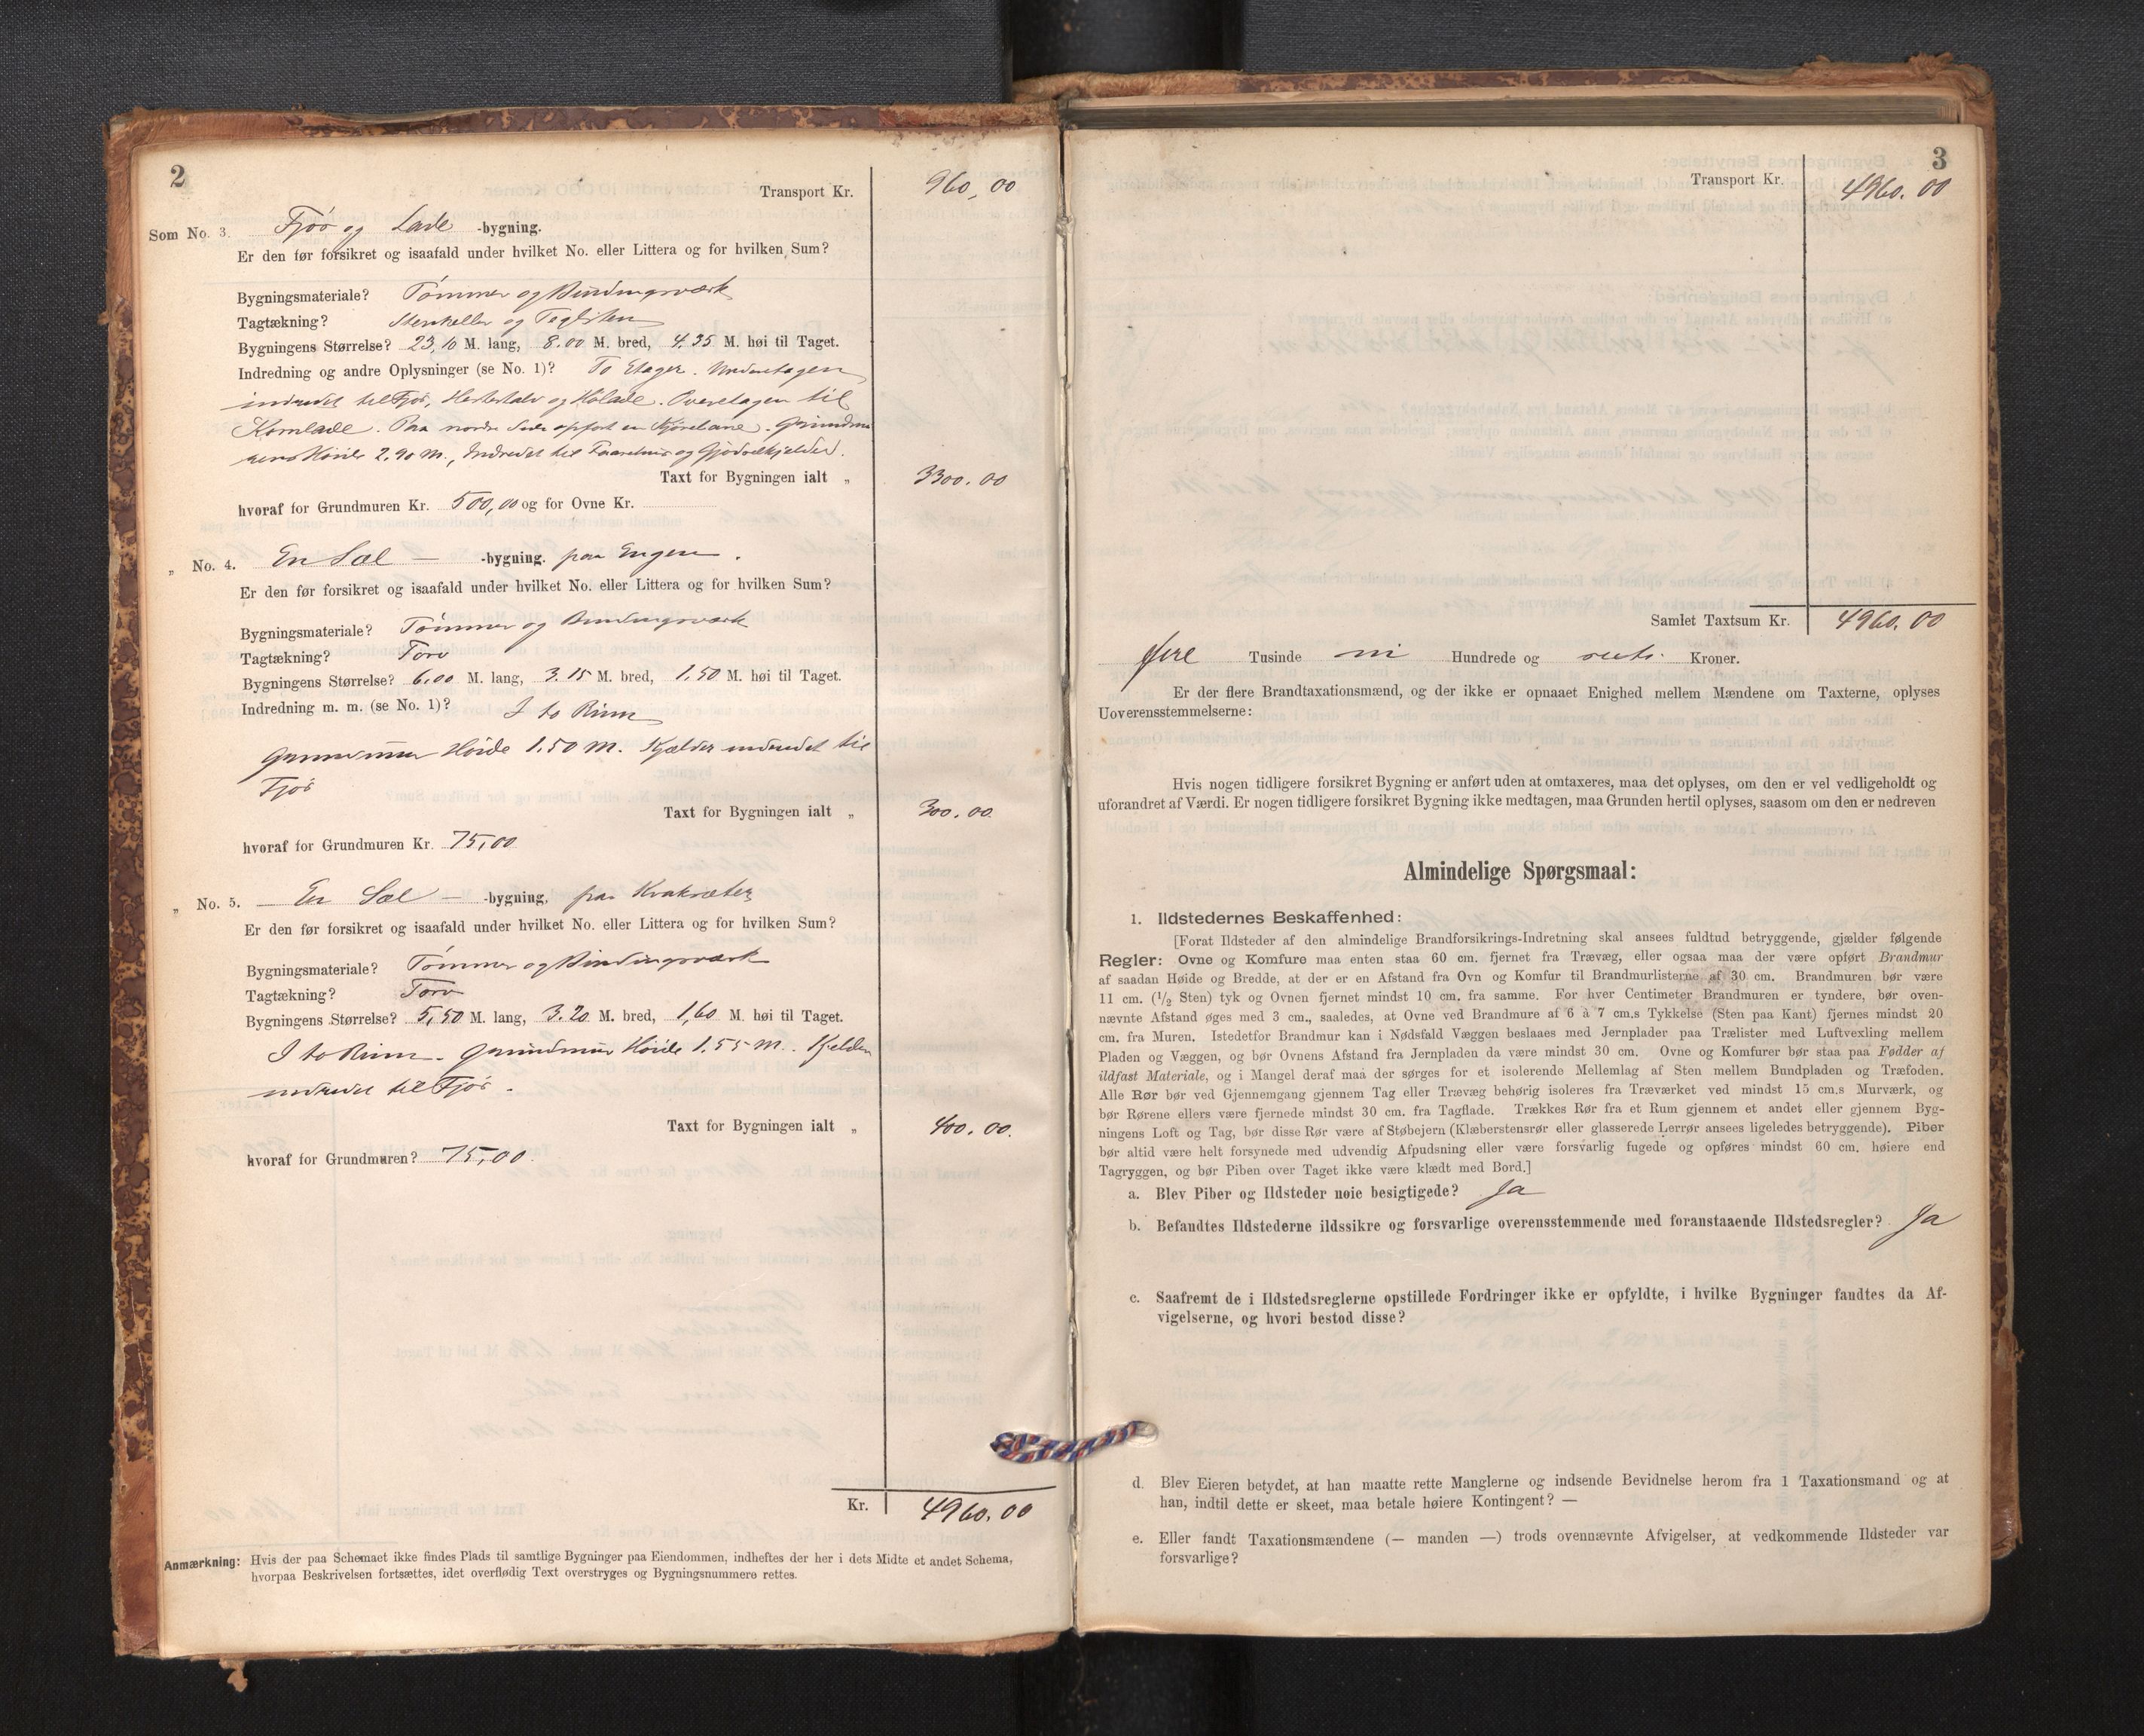 2
Transport Kr. 960,00
Som No. 3. Fjøs og Lade -bygning.
Er den før forsikret og isaafald under hvilket No. eller Littera og for hvilken Sum?
Bygningsmateriale? Tømmer og Bindingsværk
Tagtækning? Stenheller og Teglsten
Bygningens Størrelse? 23,10 M. lang, 8.00 M. bred, 4.35 M. høi til Taget.
Indredning og andre Oplysninger (se No. 1)? To Etager. Underetagen
indredet til Fjøs, Hestestald og Hølade. Overetagen til
Kornlade. Paa nordre Side opført en Kjørelane. Grundmu
rens Høide 2.90 M., Indredet til Faarehus og Gjødselkjelder.
Taxt for Bygningen ialt „ 3300.00
hvoraf for Grundmuren Kr. 500,00 og for Ovne Kr.
„ No. 4. En Sæl — -bygning. paa Engen.
Er den før forsikret og isaafald under hvilket No. eller Littera og for hvilken Sum?
Bygningsmateriale? Tømmer og Bindingsværk
Tagtækning? Torv
Bygningens Størrelse? 6,00 M. lang, 3.15 M. bred, 1,50 M. høi til Taget.
Indredning m. m. (se No. 1)? I to Rum
Grundmur Høide 1.50 M. Kjælder indredet til
Fjøs
Taxt for Bygningen ialt „ 300.00
hvoraf for Grundmuren Kr. 75,00
„ No. 5. — En Sæl — -bygning, paa
Er den før forsikret og isaafald under hvilket No. eller Littera og for hvilken Sum?
Bygningsmateriale? Tømmer og Bindingsværk
Tagtækning? Torv
Bygningens Størrelse? 5,50 M. lang, 3.20 M. bred, 1,60 M. høi til Taget.
I to Rum. Grundmur Høide 1.55 M. Kjelder
indredet til Fjøs.
Taxt for Bygningen ialt „ 400.00.
hvoraf for Grundmuren? 75,00
Kr. 4960.00
Anmærkning: Hvis der paa Schemaet ikke findes Plads til samtlige Bygninger paa Eiendommen, indheftes der her i dets Midte et andet Schema,
hvorpaa Beskrivelsen fortsættes, idet overflødig Text overstryges og Bygningsnummere rettes.
3
Transport Kr. 4960.00
Samlet Taxtsum Kr. 4960.00
Fire Tusinde ni Hundrede og sexti Kroner.
Er der flere Brandtaxationsmænd, og der ikke er opnaaet Enighed mellem Mændene om Taxterne, oplyses
Uoverensstemmelserne:
Hvis nogen tidligere forsikret Bygning er anført uden at omtaxeres, maa det oplyses, om den er vel vedligeholdt og
uforandret af Værdi. Er nogen tidligere forsikret Bygning ikke medtagen, maa Grunden hertil oplyses, saasom om den er nedreven
Almindelige Spørgsmaal:
1. Ildstedernes Beskaffenhed:
[Forat Ildsteder af den almindelige Brandforsikrings-Indretning skal ansees fuldtud betryggende, gjælder følgende
Regler: Ovne og Komfure maa enten staa 60 cm. fjernet fra Trævæg, eller ogsaa maa der være opført Brandmur
af saadan Høide og Bredde, at der er en Afstand fra Ovn og Komfur til Brandmurlisterne af 30 cm. Brandmuren bør være
11 cm. (1/2 Sten) tyk og Ovnen fjernet mindst 10 cm. fra samme. For hver Centimeter Brandmuren er tyndere, bør oven-
nævnte Afstand øges med 3 cm., saaledes, at Ovne ved Brandmure af 6 à 7 cm.s Tykkelse (Sten paa Kant) fjernes mindst 20
cm. fra Muren. Istedetfor Brandmur kan i Nødsfald Væggen beslaaes med Jernplader paa Trælister med Luftvexling mellem
Pladen og Væggen, og bør Ovnens Afstand fra Jernpladen da være mindst 30 cm. Ovne og Komfurer bør staa paa Fødder af
ildfast Materiale, og i Mangel deraf maa der sørges for et isolerende Mellemlag af Sten mellem Bundpladen og Træfoden.
Alle Rør bør ved Gjennemgang gjennem Tag eller Trævæg behørig isoleres fra Træværket ved mindst 15 cm.s Murværk, og
bør Rørene ellers være fjernede mindst 30 cm. fra Tagflade. Trækkes Rør fra et Rum gjennem et andet eller gjennem Byg-
ningens Loft og Tag, bør disse Rør være af Støbejern (Klæberstensrør eller glasserede Lerrør ansees ligeledes betryggende). Piber
bør altid være helt forsynede med udvendig Afpudsning eller være forsvarlig fugede og opføres mindst 60 cm. høiere end
Tagryggen, og bør Piben over Taget ikke være klædt med Bord.]
a. Blev Piber og Ildsteder nøie besigtigede? Ja
b. Befandtes Ildstederne ildssikre og forsvarlige overensstemmende med foranstaaende Ildstedsregler? Ja
c. Saafremt de i Ildstedsreglerne opstillede Fordringer ikke er opfyldte, i hvilke Bygninger fandtes da Af-
vigelserne, og hvori bestod disse?
d. Blev Eieren betydet, at han maatte rette Manglerne og indsende Bevidnelse herom fra 1 Taxationsmand og at
han, indtil dette er skeet, maa betale høiere Kontingent? —
e. Eller fandt Taxationsmændene (— manden —) trods ovennævnte Afvigelser, at vedkommende Ildsteder var
forsvarlige?